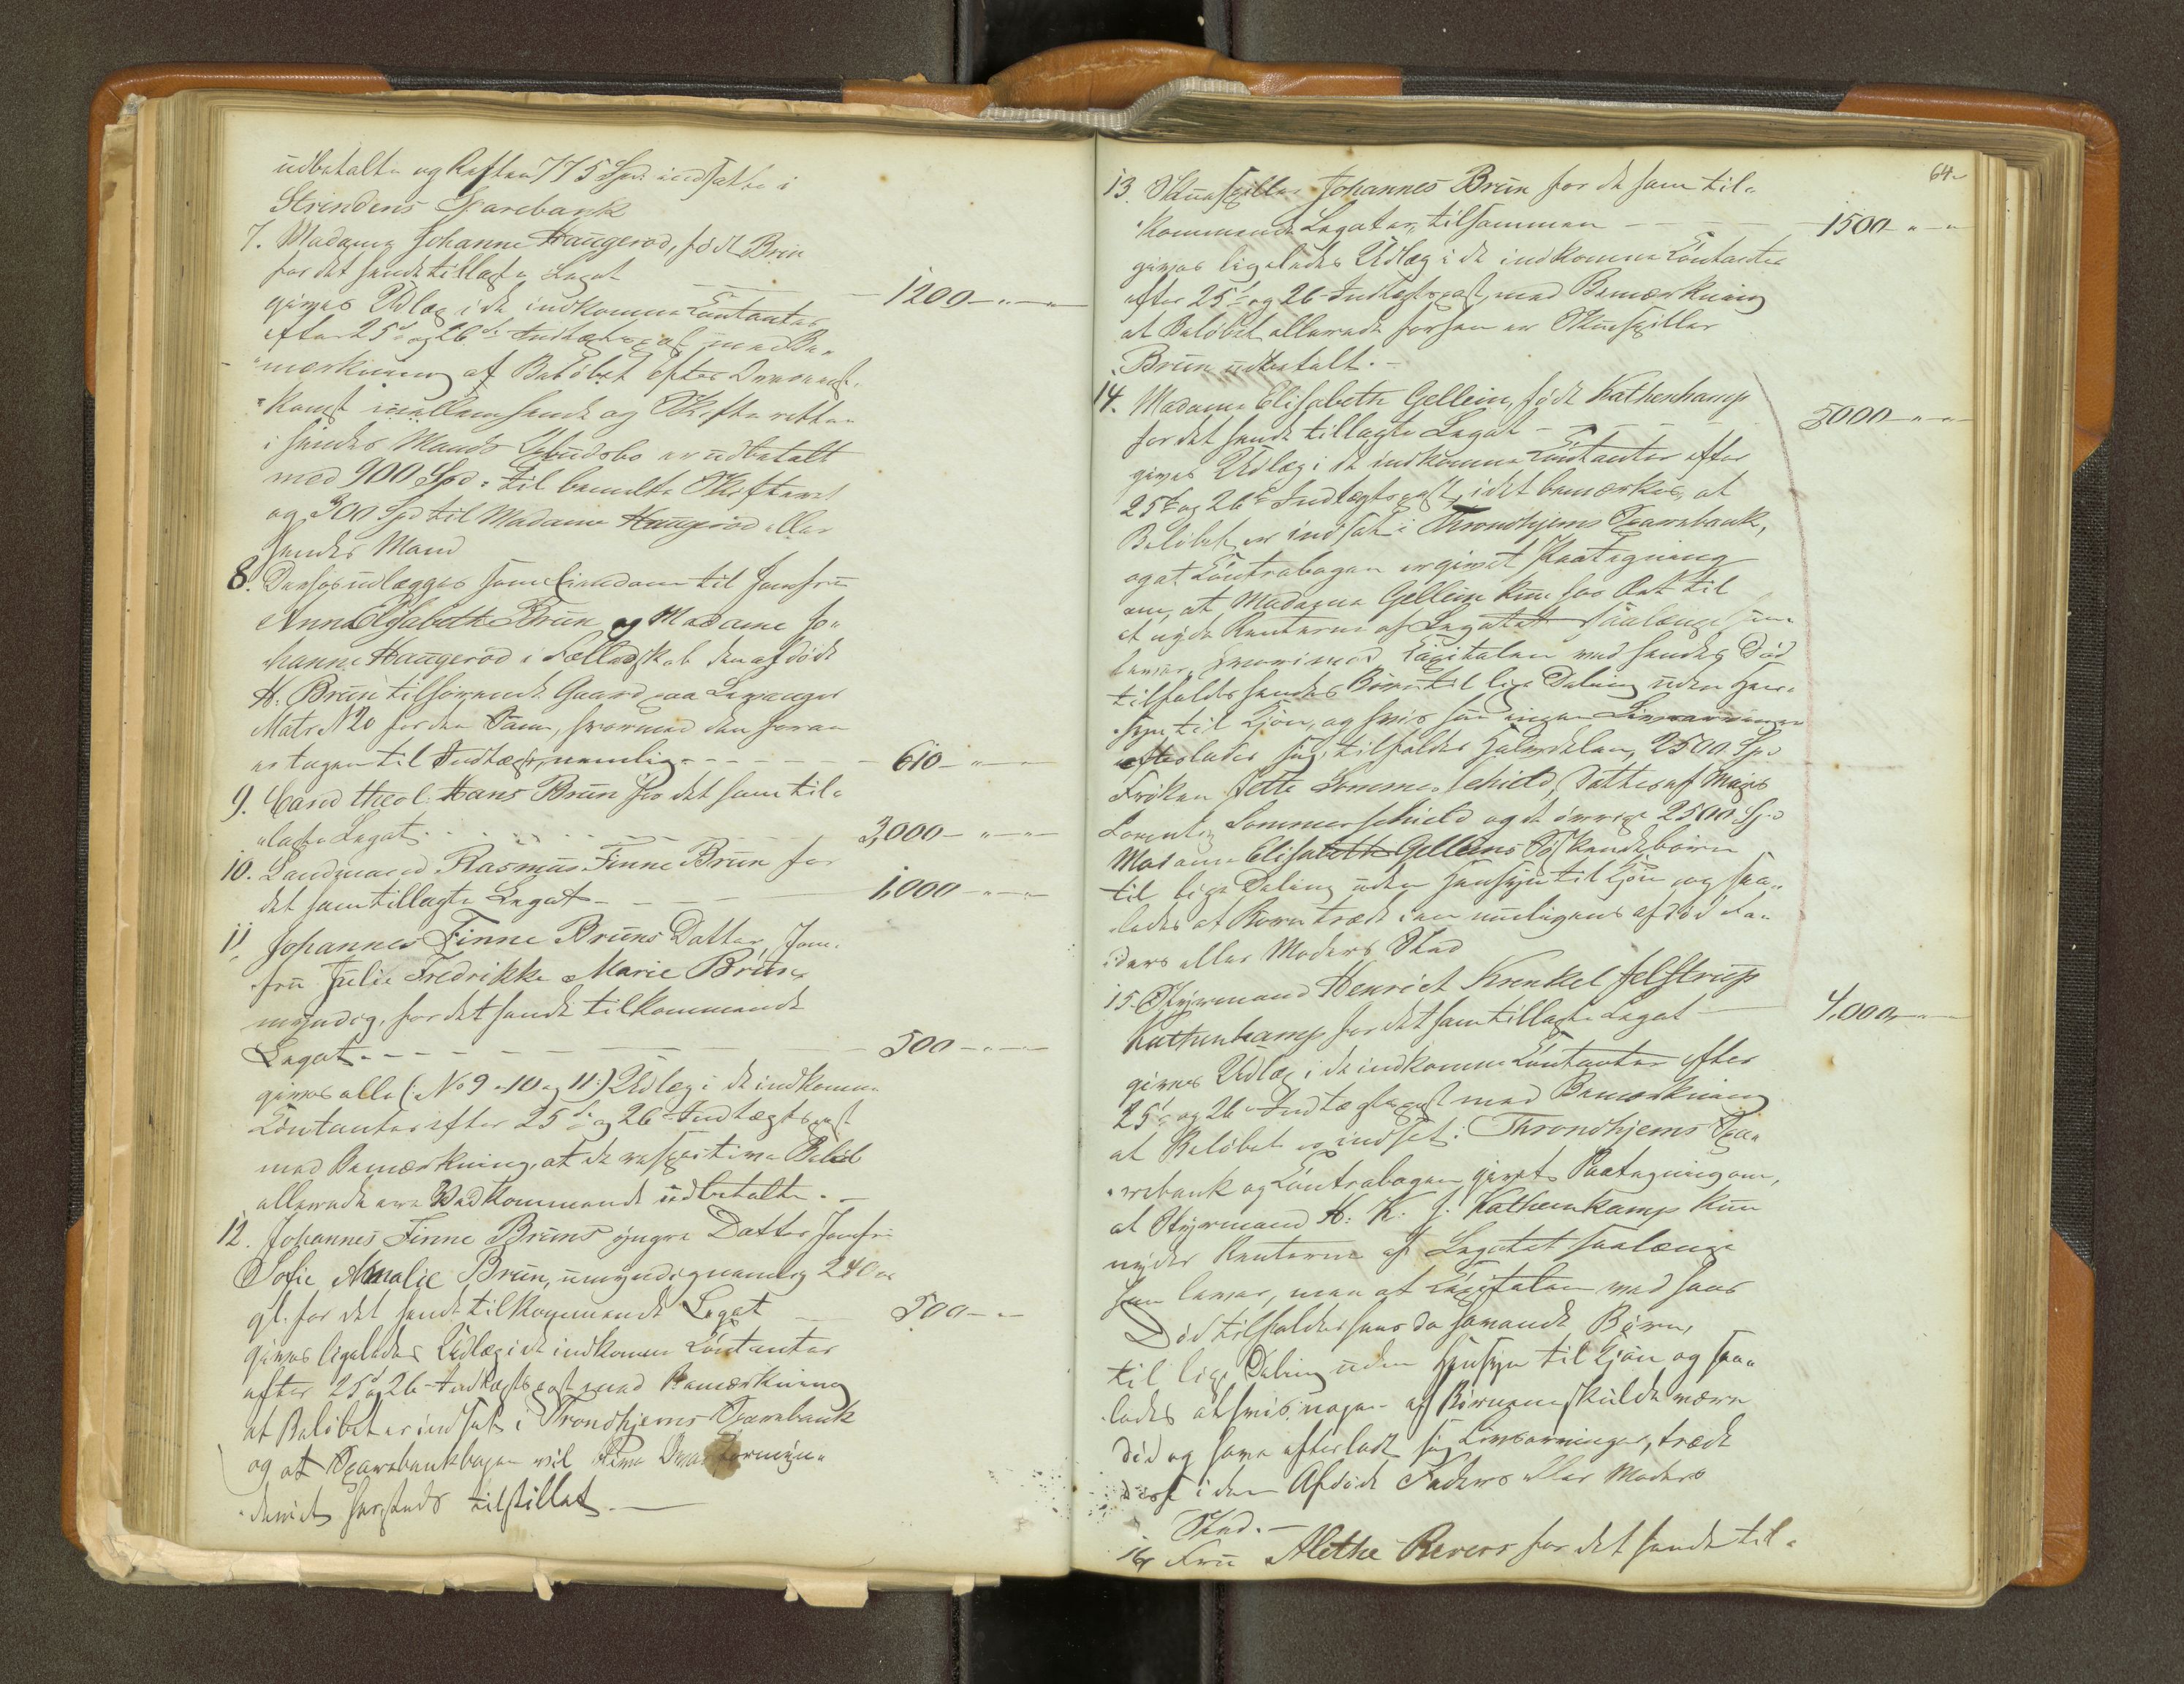 udbetalte og Resten 775 Spd. indsatte i
Strindens Sparebank
7. Madame Johanne Haugerød, født Brun
for det hende tillagte Legat - 1200 - " - "
gives Udlæg i de indkomne Contanter
efter 25de og 26de Indtægtspost med Be-
mærkning at Beløbet efter Overens-
komst imellem hende og Skifteretten
i hendes Mands Opbudsbo er udbetalt
med 900 Spd. til bemeldte Skifteret
og 300 Spd til Madame Haugerød eller
hendes Mand
8. Derhos udlægges som Eiendom til Jomfru
Anna Elisabeth Brun og Madame Jo-
hanne Haugerød i Fælledskab den afdøde
H. Brun tilhørende Gaard paa Levanger
Matr. N 20 for den Sum, hvormed den foran
er tagen til Indtægt, nemlig - - - 610 - " - "
9. Cand theol. Hans Brun for det ham til-
lagte Legat - - - 3,000 - " - "
10. Landmand Rasmus Finne Brun for
det ham tillagte Legat - - - 1,000 - " - "
11. Johannes Finne Bruns Datter, Jom-
fru Julie Fredrikke Marie Brun,
myndig, for det hende tilkommende
Legat - - - 500 - " - "
gives alle (: No 9 - 10 og 11 :) Udlæg i de indkomne
Contanter efter 25de og 26 Indtægtspost
med Bemærkning, at de respective Beløb
allerede ere Vedkommende udbetalte. -
12. Johannes Finne Bruns yngre Datter Jomfru
Sofie Amalie Brun, umyndig nemlig
gl. for det hende tilkommende Legat - 500 - " -
gives ligeledes Udlæg i de indkomne Contanter
efter 25 og 26 Indtægtspost med Bemærkning
at Beløbet er indsat i Trondhjems Sparebank
og at Sparebankbogen vil blive Overformyn-
deriet hersteds tilstillet. -
64.
13. Skuespiller Johannes Brun for de ham til-
kommende Legater, tilsammen - - - 1500 - " - "
gives ligeledes Udlæg i de indkomne Contanter
efter 25de og 26 Indtægtspost med Bemærkning
at Beløbet allerede forhen er Skuespiller
Brun udbetalt. -
14. Madame Elisabeth Gellein, født Kathenkamp
for det hende tillagte Legat - - - 5000 - " - "
gives Udlæg i de indkomne Contanter efter
25de og 26de Indtægtspost, idet bemærkes, at
Beløbet er indsat i Throndhjems Sparebank,
og at Contrabogen er givet Paategning
om, at Madame Gellein kun har Ret til
at nyde Renterne af Legatet saalænge hun
lever, hvorimod Capitalen ved hendes Død
tilfalder hendes Børn til lige Deling uden Hen-
syn til Kjøn, og hvis hun ingen Livsarvinger
efterlader sig, tilfalder Halvdelen, 2500 Spd
Frøken Jette Sommerschield, Datter af Major
Lorentz Sommerschield og de øvrige 2500 Spd
Madame Elisabeth Gelleins Søskendebørn
til lige Deling uden Hensyn til Kjøn og saa-
ledes at Børn træde i en muligens afdød Fa-
ders eller Moders Sted
15. Styrmand Henrich Krenkel Jelstrup
Kathenkamp for det ham tillagte Legat - 4,000 - " -
gives Udlæg i de indkomne Contanter efter
25de og 26 Indtægtspost med Bemærkning
at Beløbet er indsat i Throndhjems Spa-
rebank og Contrabogen givet Paategning om,
at Styrmand H: K: J. Kathenkamp kun
nyder Renterne af Legatet saalænge
han lever, men at Capitalen ved hans
Død tilfalder hans da havende Børn,
til lige Deling uden Hensyn til Kjøn og saa-
ledes at hvis nogen af Børnene skulde være
død og have efterladt sig Livsarvinger, træde
disse i den Afdøde Faders eller Moders
Sted. -
16. Fru Alethe Revers for det hende til-